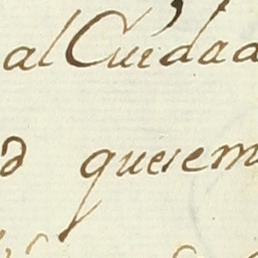 al Cuidad
d querem